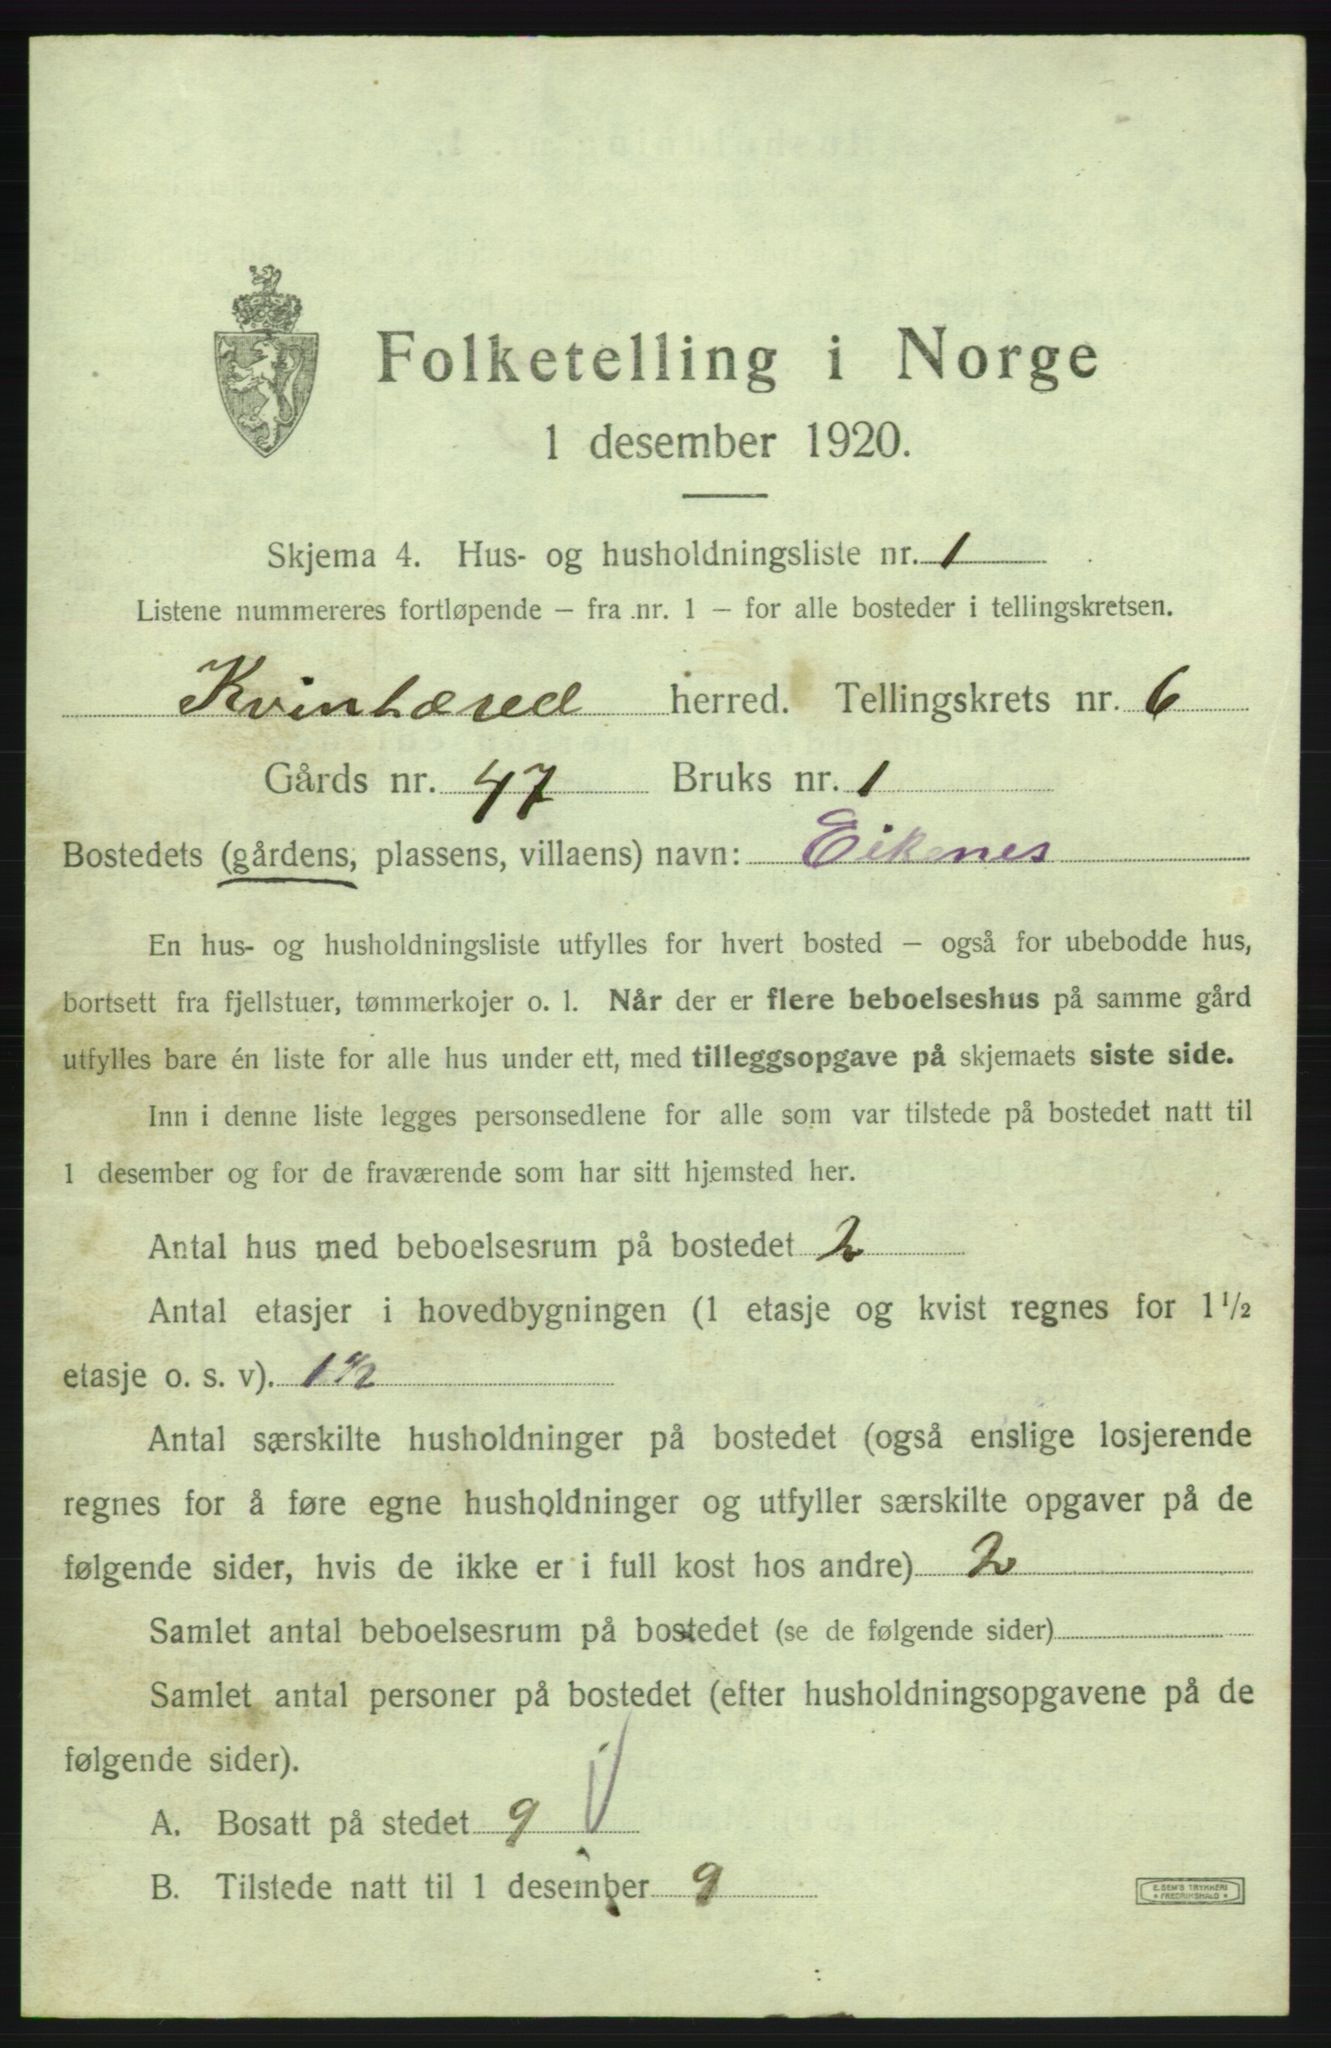 Folketelling i Norge
1 desember 1920.
Skjema 4. Hus- og husholdningsliste nr. 1
Listene nummereres fortløpende – fra nr. 1 – for alle bosteder i tellingskretsen.
Kvinhæred herred. Tellingskrets nr. 6
Gårds nr. 47 Bruks nr. 1
Bostedets (gårdens, plassens, villaens) navn: Eikenes
En hus- og husholdningsliste utfylles for hvert bosted – også for ubebodde hus,
bortsett fra fjellstuer, tømmerkojer o. l. Når der er flere beboelseshus på samme gård
utfylles bare én liste for alle hus under ett, med tilleggsopgave på skjemaets siste side.
Inn i denne liste legges personsedlene for alle som var tilstede på bostedet natt til
1 desember og for de fraværende som har sitt hjemsted her.
Antal hus med beboelsesrum på bostedet 2
Antal etasjer i hovedbygningen (1 etasje og kvist regnes for 1 1/2
etasje o. s. v). 1 1/2
Antal særskilte husholdninger på bostedet (også enslige losjerende
regnes for å føre egne husholdninger og utfyller særskilte opgaver på de
følgende sider, hvis de ikke er i full kost hos andre) 2
Samlet antal beboelsesrum på bostedet (se de følgende sider)
Samlet antal personer på bostedet (efter husholdningsopgavene på de
følgende sider).
A. Bosatt på stedet 9
B. Tilstede natt til 1 desember 9
E. SEM'S TRYKKERI
FREDRIKSHALD